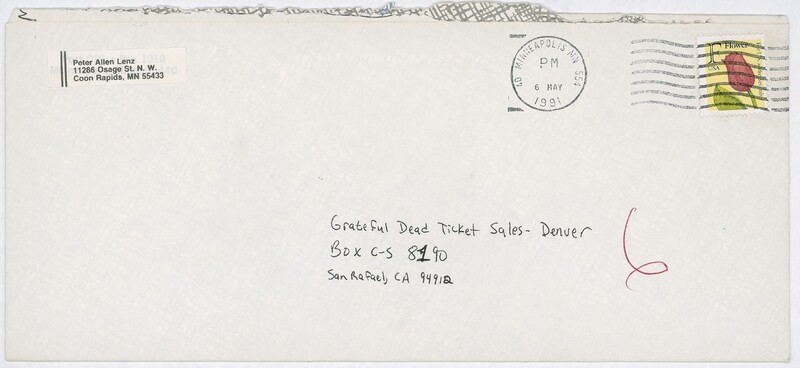 Peter Allen Lenz
11286 Osage St. N. W.
Coon Rapids, MN 55433
MINNEAPOLIS MN 554
PM
6 MAY
1991
F Flower
USA
Grateful Dead Ticket Sales- Denver
Box C-S 8190
San Rafael, CA 94912
6